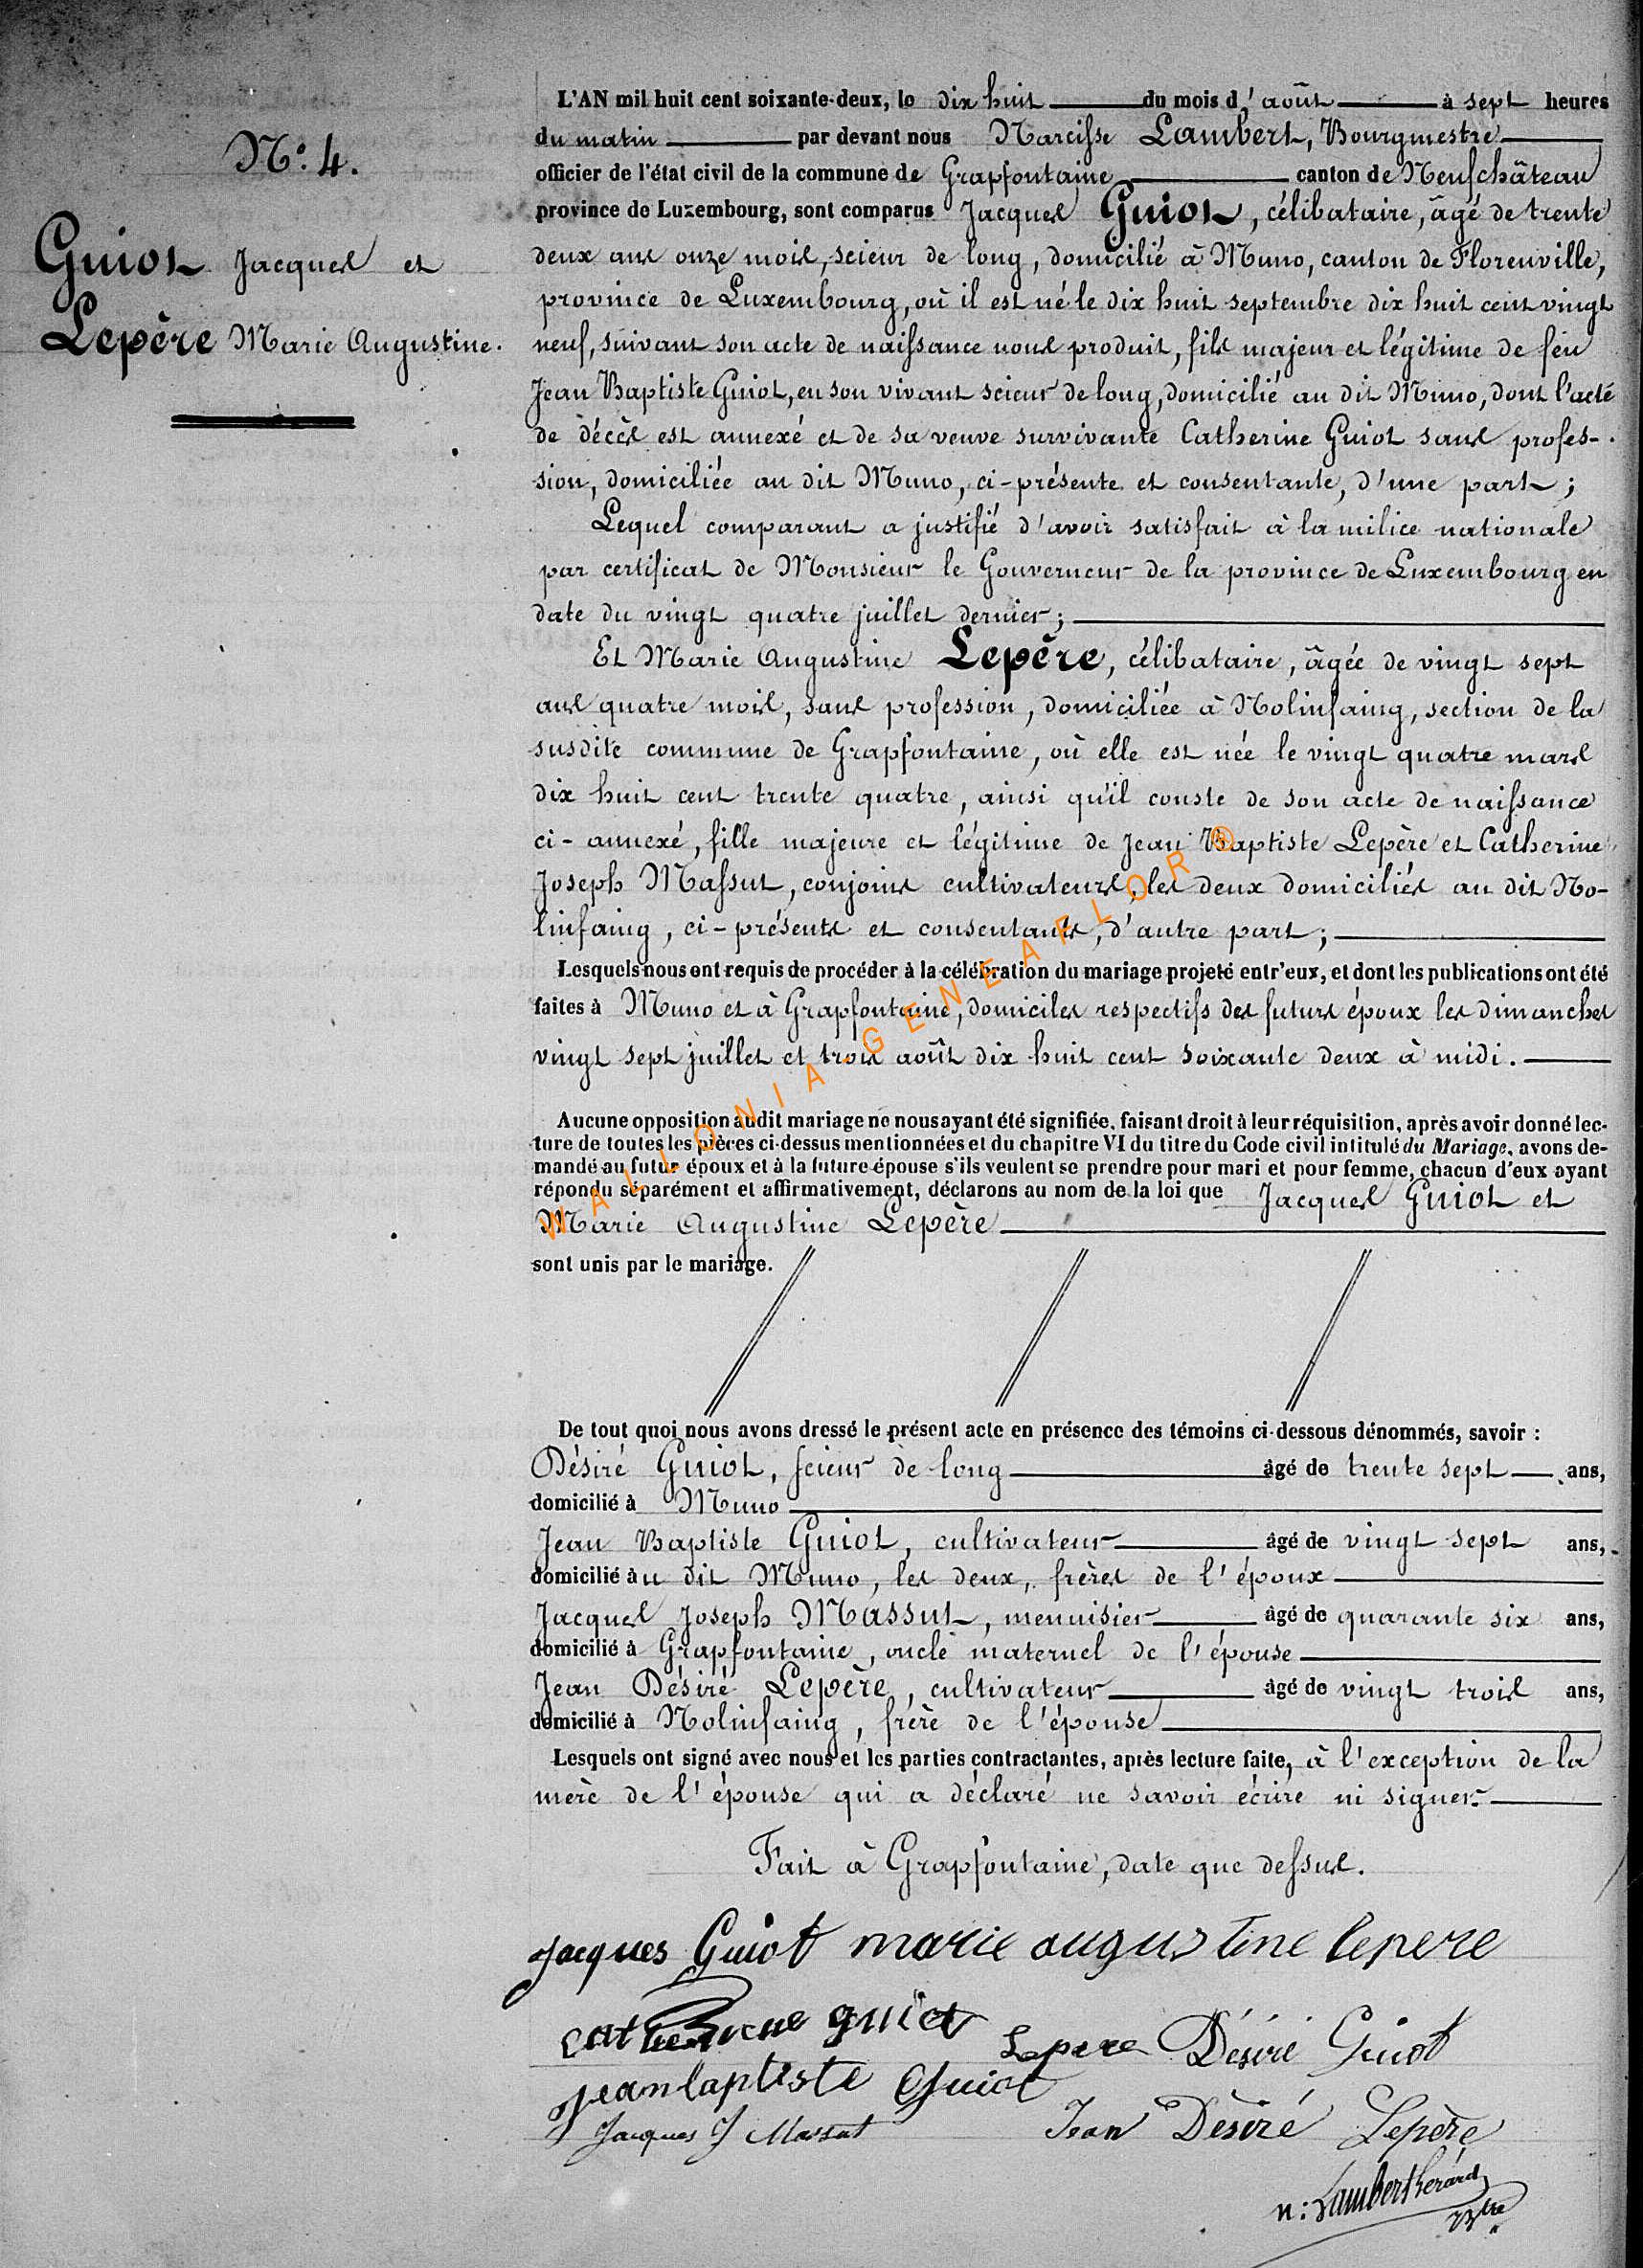 N°: 4.
Guiot Jacques et
Lepère Marie Augustine.
L'AN mil huit cent soixante-deux, le dix huit du mois d'août à sept heures
du matin par devant nous Narcisse Lambert, Bourgmestre
officier de l'état civil de la commune de Grapfontaine canton de Neufchâteau
province de Luxembourg, sont comparus Jacques Guiot, célibataire, âgé de trente
deux ans onze mois, scieur de long, domicilié à Muno, canton de Florenville,
province de Luxembourg, où il est né le dix huit septembre dix huit cent vingt
neuf, suivant son acte de naissance nous produit, fils majeur et légitime de feu
Jean Baptiste Guiot, en son vivant scieur de long, domicilié au dit Muno, dont l'acte
de décès est annexé et de sa veuve survivante Catherine Guiot sans profes-
sion, domiciliée au dit Muno, ci-présente et consentante, d'une part;
Lequel comparant a justifié d'avoir satisfait à la milice nationale
par certificat de Monsieur le Gouverneur de la province de Luxembourg en
date du vingt quatre juillet dernier;
Et Marie Augustine Lepère, célibataire, âgée de vingt sept
ans quatre mois, sans profession, domiciliée à Nolinfaing, section de la
susdite commune de Grapfontaine, où elle est née le vingt quatre mars
dix huit cent trente quatre, ainsi qu'il conste de son acte de naissance
ci-annexé, fille majeure et légitime de Jean Baptiste Lepère et Catherine
Joseph Massut, conjoins cultivateurs, les deux domiciliés au dit No-
linfaing, ci-présents et consentants, d'autre part;
Lesquels nous ont requis de procéder à la célébration du mariage projeté entr'eux, et dont les publications ont été
faites à Muno et à Grapfontaine, domiciles respectifs des futurs époux les dimanches
vingt sept juillet et trois août dix huit cent soixante deux à midi.
Aucune opposition audit mariage ne nous ayant été signifiée, faisant droit à leur réquisition, après avoir donné lec-
ture de toutes les pièces ci-dessus mentionnées et du chapitre VI du titre du Code civil intitulé du Mariage, avons de-
mandé au futur époux et à la future épouse s'ils veulent se prendre pour mari et pour femme, chacun d'eux ayant
répondu séparément et affirmativement, déclarons au nom de la loi que Jacques Guiot et
Marie Augustine Lepère
sont unis par le mariage.
De tout quoi nous avons dressé le présent acte en présence des témoins ci-dessous dénommés, savoir :
Désiré Guiot, scieur de long âgé de trente sept ans,
domicilié à Muno
Jean Baptiste Guiot, cultivateur âgé de vingt sept ans,
domicilié àu dit Muno, les deux, frères de l'époux
Jacques Joseph Massut, menuisier âgé de quarante six ans,
domicilié à Grapfontaine, oncle maternel de l'épouse
Jean Désiré Lepère, cultivateur âgé de vingt trois ans,
domicilié à Nolinfaing, frère de l'épouse
Lesquels ont signé avec nous et les parties contractantes, après lecture faite, à l'exception de la
mère de l'épouse qui a déclaré ne savoir écrire ni signer.
Fait à Grapfontaine, date que dessus.
Jacques Guiot marie augustine lepere
catherine guiot Lepere Désiré Guiot
jean baptiste Guiot
Jacques J Massut Jean Désiré Lepère
n: Lambert Gérard
Bstre
WALLONIA-GENEAFLOR ®